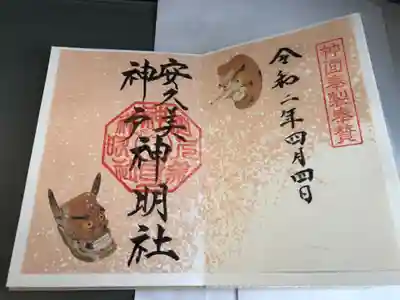 神面奉製奉賛
令和二年四月四日
安久美
神戸
神明社